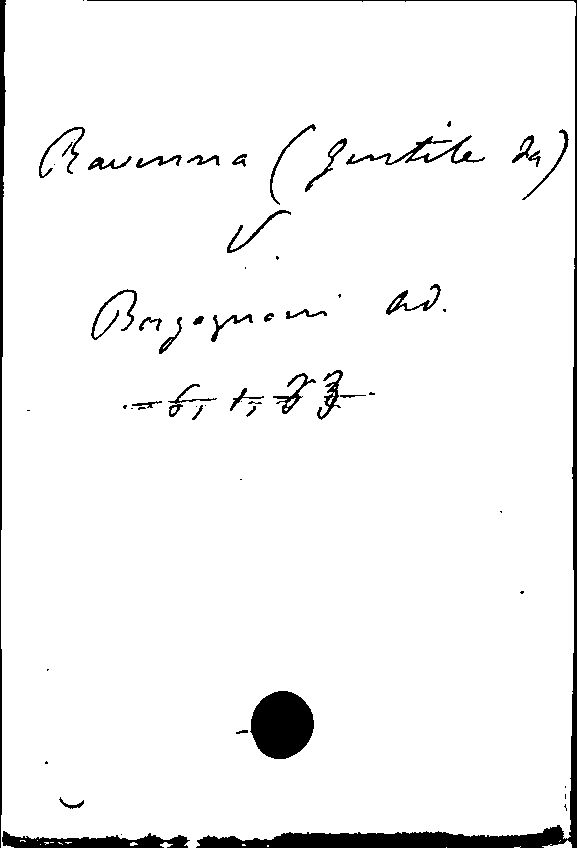 Ravenna (Gentile da)
V.
Borgognoni Ad.